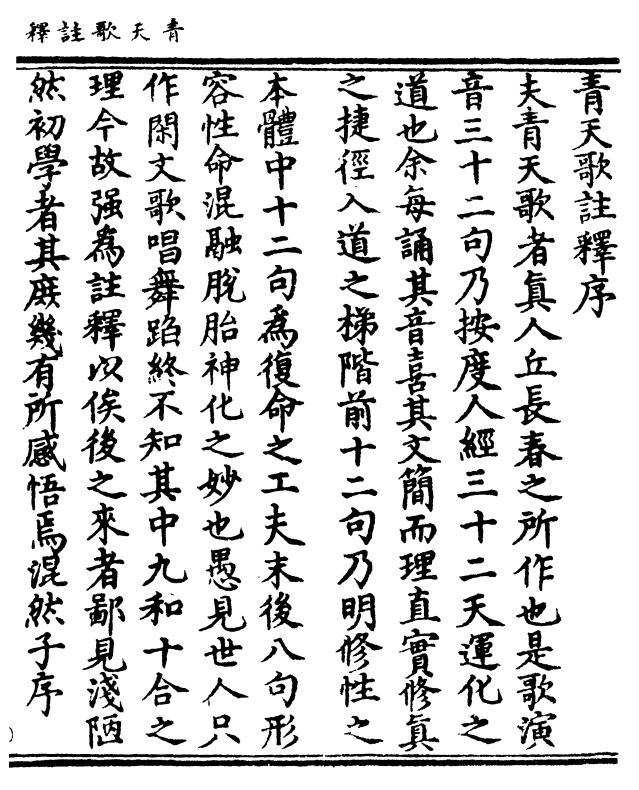 青天歌註釋
青天歌註釋序
夫青天歌者眞人丘長春之所作也是歌演
音三十二句乃按度人經三十二天運化之
道也余每誦其音喜其文簡而理直實修眞
之捷徑入道之梯階前十二句乃明修性之
本體中十二句為復命之工夫末後八句形
容性命混融脫胎神化之妙也愚見世人只
作閑文歌唱舞蹈終不知其中九和十合之
理今故强為註釋以俟後之來者鄙見淺陋
然初學者其庶幾有所感悟焉混然子序